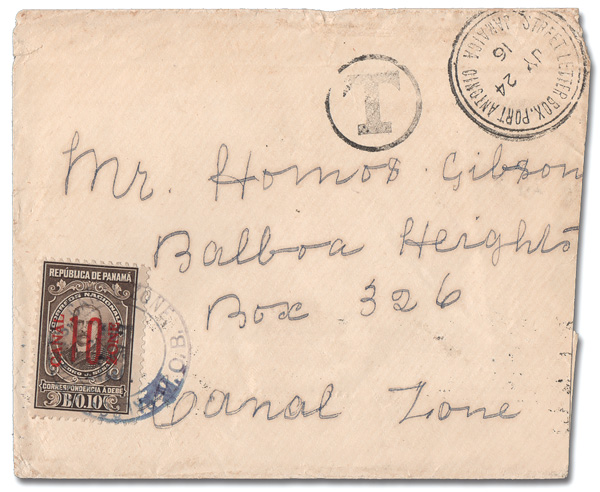 STREET LETTER BOX. PORT ANTONIO JAMAICA
JY 24
16
T
Mr. Homos Gibson
Balboa Heights
Box 326
Canal Zone
REPÚBLICA DE PANAMÁ
CORREOS NACIONALES
CANAL 10 ZONE
CORRESPONDENCIA A DEBE
B/0.10